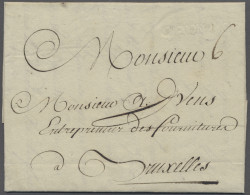 Monsieur 6
Monsieur
Entrepreneur des fournitures
à Bruxelles